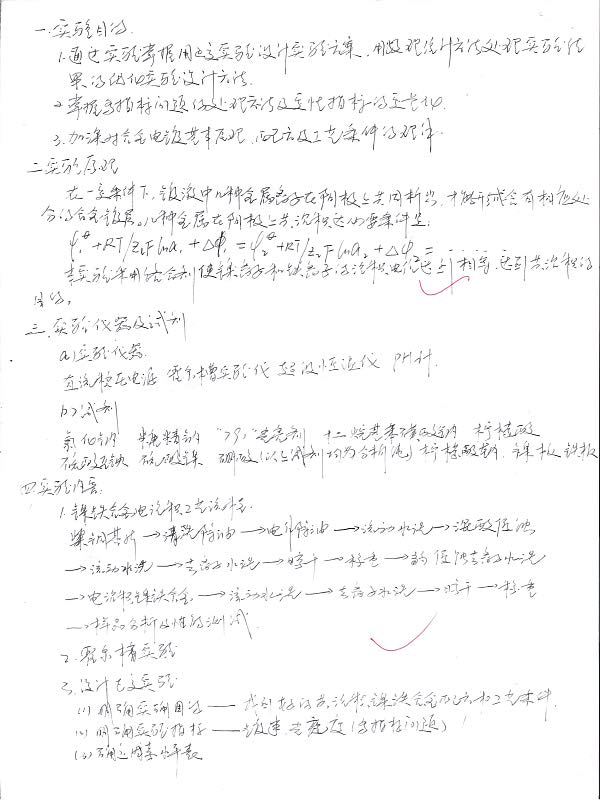 一.实验目的
1.通过实验掌握用正交实验设计实验方案,用数理统计方法处理实验结
果的优化实验设计方法.
2.掌握多指标问题的处理方法及至性指标的量化.
3.加深对合金电镀基本原理,配方及工艺条件的理解.
二.实验原理
在一定条件下,镀液中几种金属离子在阴极上共同析出,才能形成含有相应处
分的合金镀层。几种金属在阴极上共沉积的必要条件是:
φ₁^θ+RT/z₁F lna₁+Δφ₁=φ₂^θ+RT/z₂F lna₂+Δφ₂=……
本实验采用络合剂使镍离子和铁离子的沉积电位达到相等,达到共沉积的
目的。
三.实验仪器及试剂
a)实验仪器
直流稳压电源 霍尔槽实验仪 超级恒温仪 PH计.
b)试剂
氯化钠 糖精钠 "791"光亮剂 十二烷基磺酸钠 柠檬酸
硫酸亚铁 硫酸镍 硼酸(以上试剂均为分析纯) 柠檬酸钠 镍板 铁板
四.实验内容.
1.镍铁合金电沉积工艺流程
紫铜基片→清洗除油→电化学除油→流动水洗→混酸浸蚀
→流动水洗→去离子水洗→晾干→称重→弱浸蚀去离子水洗
→电沉积镍铁合金→流动水洗→去离子水洗→晾干→称重
→样品分析及性能测试.
2.霍尔槽实验
3.设计正交实验
(1)明确实验目的——找到好的共沉积镍铁合金配方和工艺条件.
(2)明确实验指标——镀速、光亮度(多指标问题)
(3)确定因素水平表